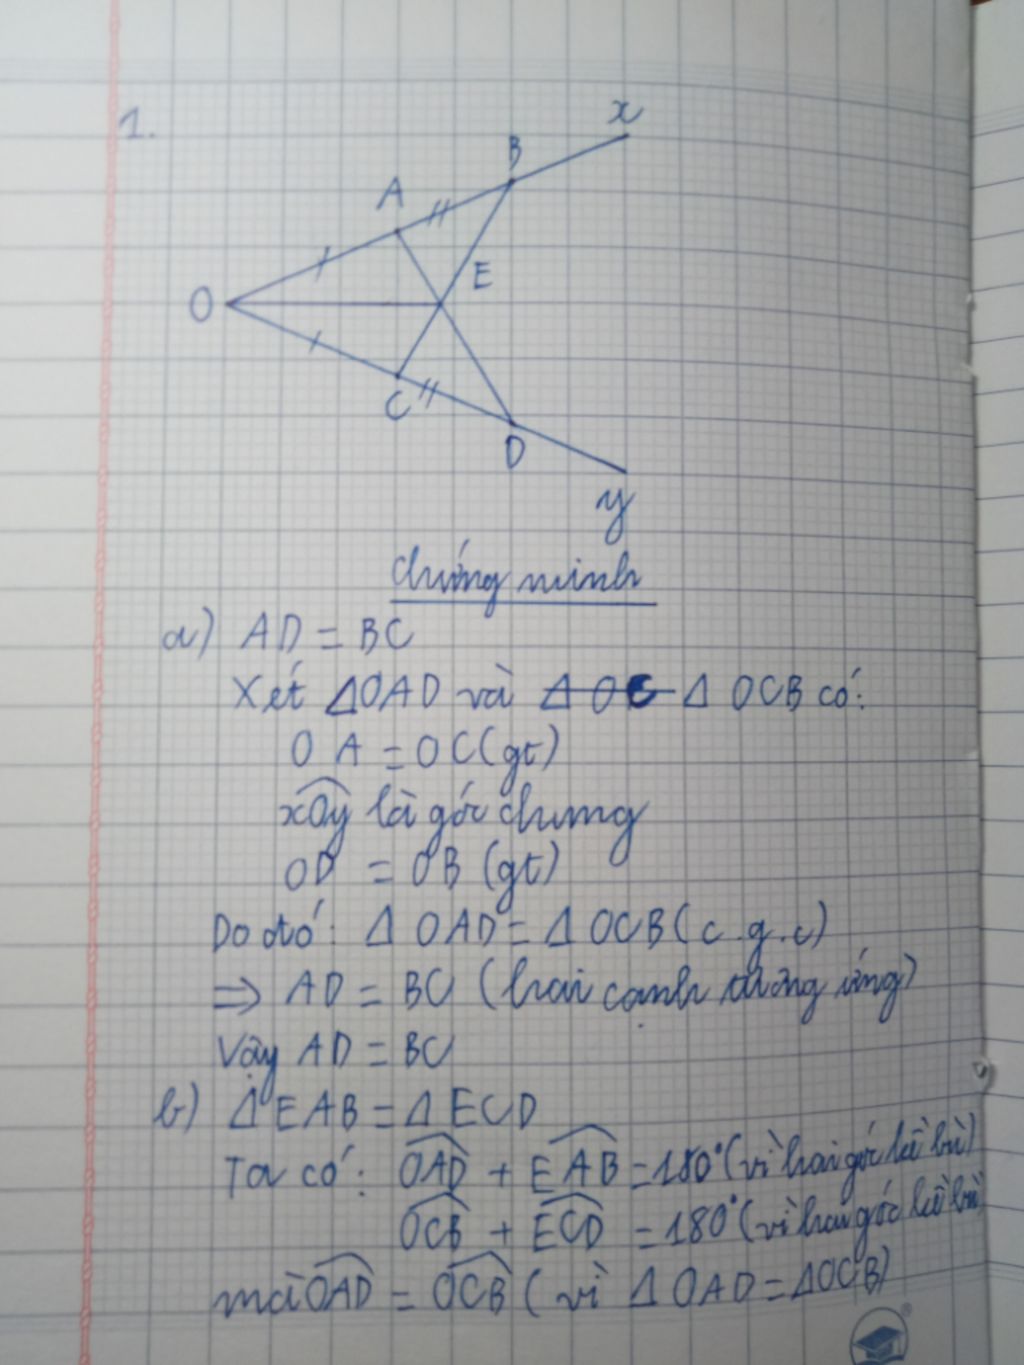 1.
x
B
A
E
O
C
D
y
Chứng minh
a) AD = BC
Xét ΔOAD và Δ OC Δ OCB có:
OA = OC (gt)
xOy là góc chung
OD = OB (gt)
Do đó: Δ OAD = Δ OCB (c.g.c)
⇒ AD = BC (hai cạnh tương ứng)
Vậy AD = BC
b) Δ EAB = Δ ECD
Ta có: OAD + EAB = 180° (vì hai góc kề bù)
OCB + ECD = 180° (vì hai góc kề bù
mà OAD = OCB (vì Δ OAD = ΔOCB)